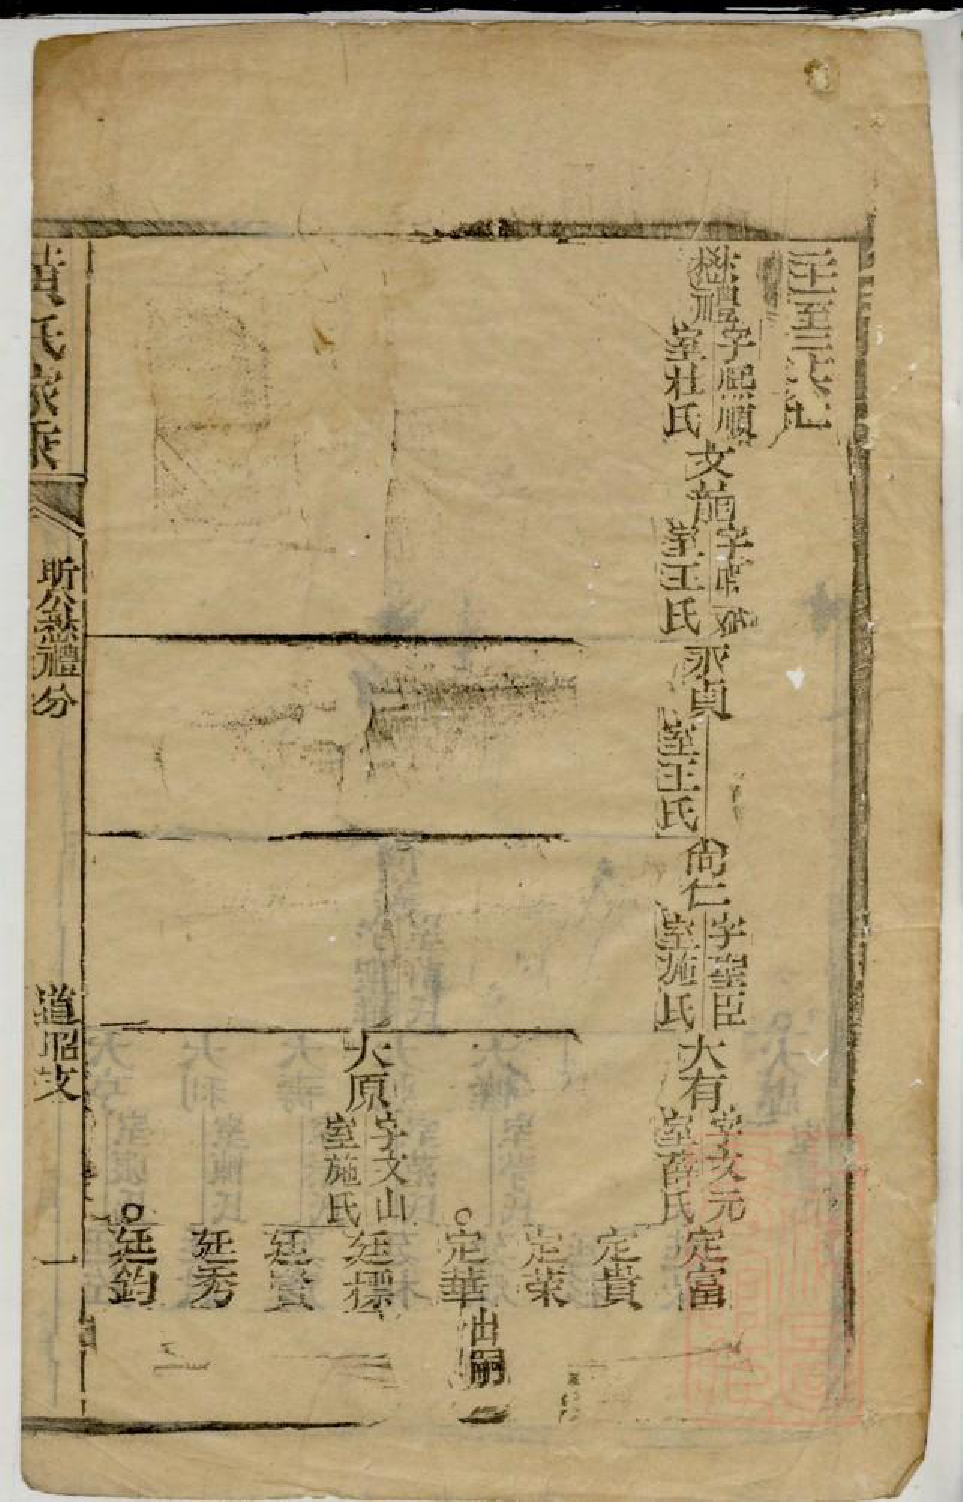 至三
懋禮 字熙順 室杜氏
文 室王氏
永貞 室王氏
尚仁 字聖臣 室施氏
大有 字文元 室薛氏
定富
定貴
定業
定華 出嗣
大原 字文山 室施氏
廷標
廷賢
廷秀
廷鈞
黃氏家乘
昕公懋禮分
道昭支
一